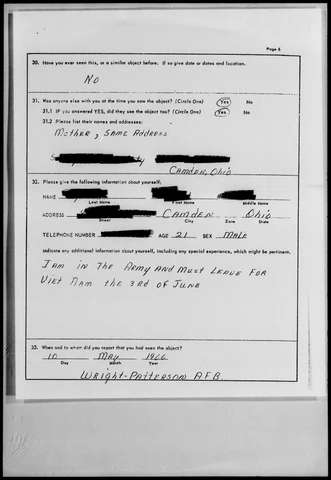 Page 6
30. Have you ever seen this, or a similar object before. If so give date or dates and location.
No
31. Was anyone else with you at the time you saw the object? (Circle One) Yes No
31.1 IF you answered YES, did they see the object too? (Circle One) Yes No
31.2 Please list their names and addresses:
Mother, Same Address
Camden, Ohio
32. Please give the following information about yourself:
NAME
Last Name First Name Middle Name
ADDRESS Camden Ohio
Street City Zone State
TELEPHONE NUMBER AGE 21 SEX Male
Indicate any additional information about yourself, including any special experience, which might be pertinent.
I am in the Army and must leave for
Viet Nam the 3rd of June
33. When and to whom did you report that you had seen the object?
10 May 1966
Day Month Year
Wright-Patterson A.F.B.